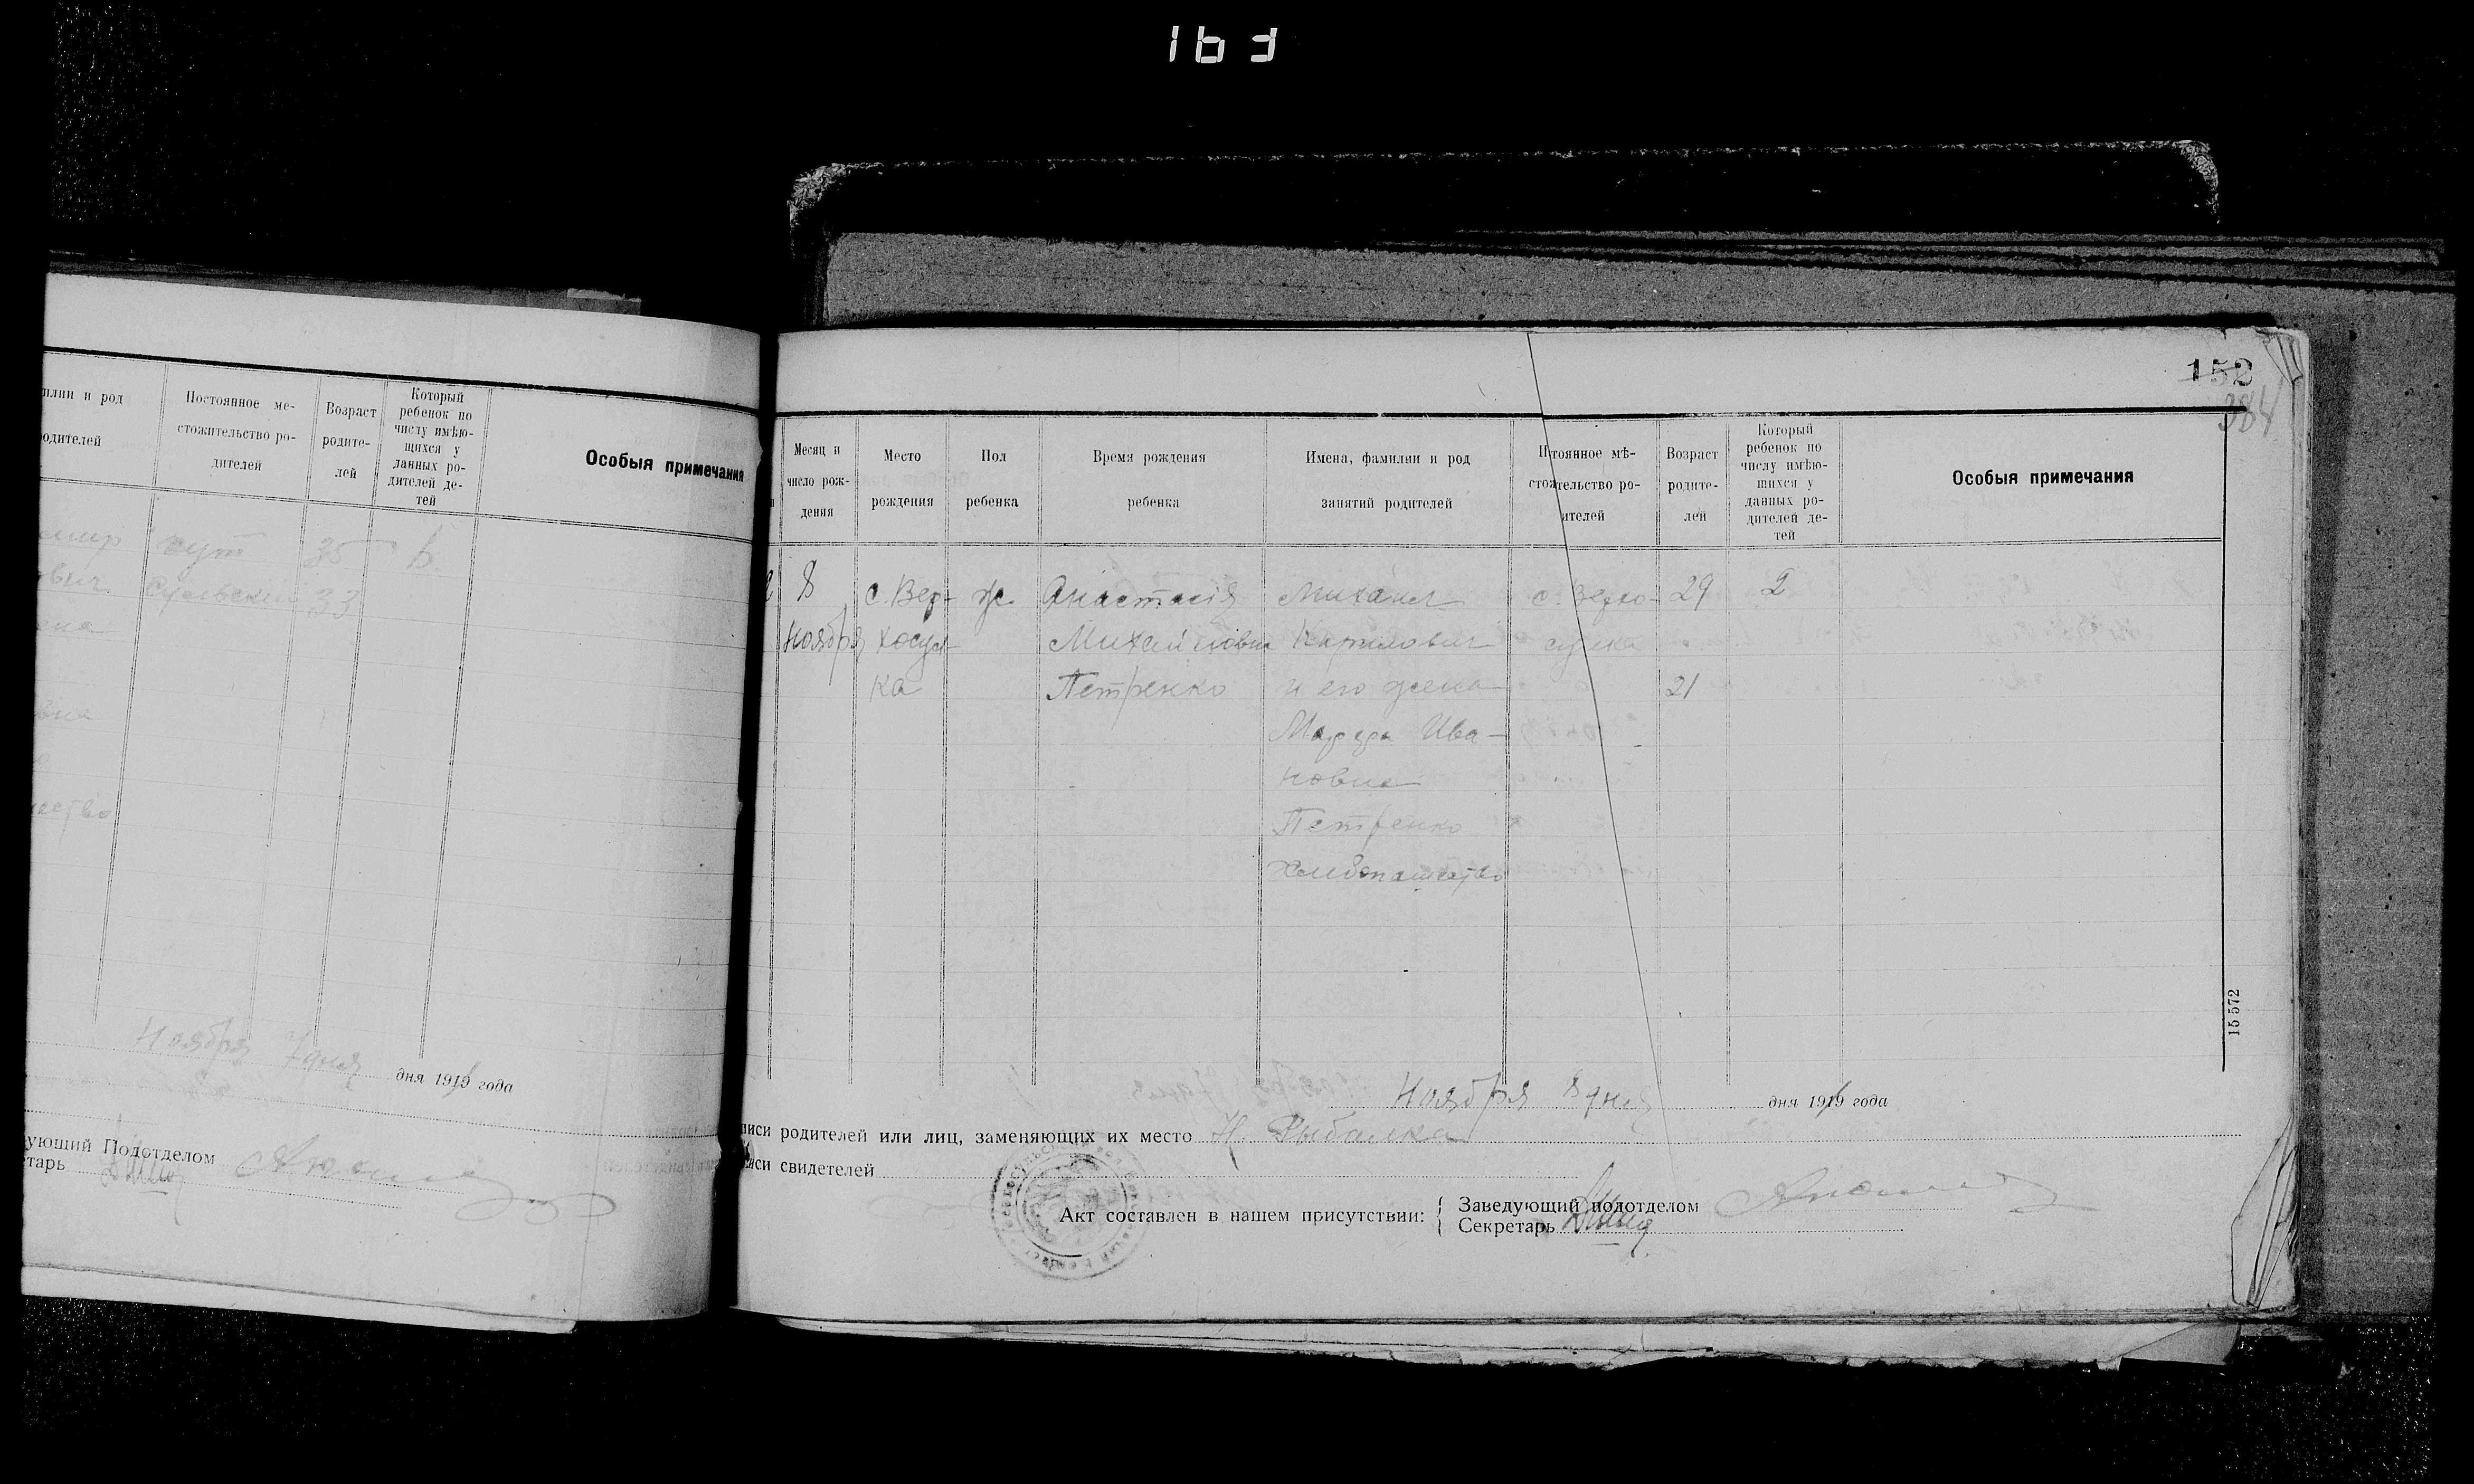 163
илии и род
одителей
Постоянное ме-
стожительство ро-
дителей
Возраст
родите-
лей
Который
ребенок по
числу имѣю-
щихся у
данных ро-
дителей де-
тей
Особыя примечания
хут 35 6
Сульский 33
Ноября 7 дня дня 1919 года
ующий Подотделом
етарь
152
384
Месяц и
число рож-
дения
Место
рождения
Пол
ребенка
Время рождения
ребенка
Имена, фамилии и род
занятий родителей
тоянное мѣ-
стожительство ро-
ителей
Возраст
родите-
лей
Который
ребенок по
числу имѣю-
щихся у
данных ро-
дителей де-
тей
Особыя примечания
8
Ноября
с. Вер-
хосул-
ка
ж.
Анастасія
Михайловна
Петренко
Михаил
Кирилович
и его жена
Ива-
новна
Петренко
Хлебопашество
с. Верхо-
сулка
29
21
2
Ноября 8 дня дня 1919 года
иси родителей или лиц, заменяющих их место Н. Рыбалка
иси свидетелей
Акт составлен в нашем присутствии:
Заведующий подотделом
Секретарь
15 572